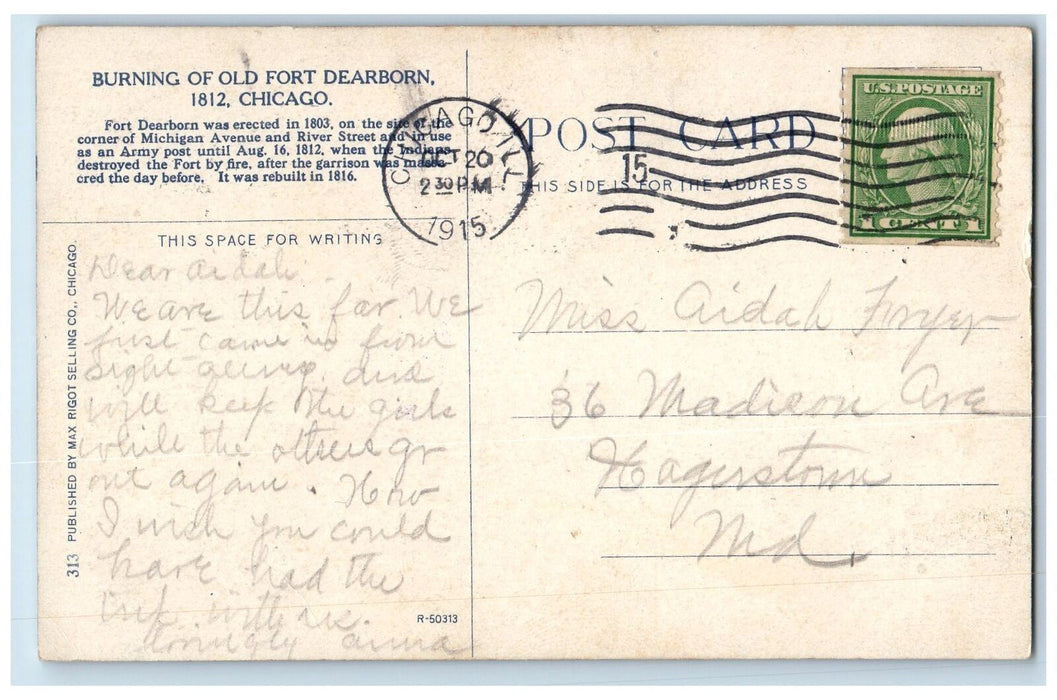 BURNING OF OLD FORT DEARBORN,
1812, CHICAGO.
Fort Dearborn was erected in 1803, on the site of the
corner of Michigan Avenue and River Street and in use
as an Army post until Aug. 16, 1812, when the Indians
destroyed the Fort by fire, after the garrison was massa-
cred the day before. It was rebuilt in 1816.
CHICAGO, ILL.
OCT 20
2 30 PM
1915
15
POST CARD
THIS SIDE IS FOR THE ADDRESS
U.S. POSTAGE
1 CENT 1
THIS SPACE FOR WRITING
Dear Aidah.
We are this far. We
just came in from
sight seeing and
will keep the girls
while the others go
out again. How
I wish you could
have had the
trip with us.
Lovingly Anna
Miss Aidah Fryer
36 Madison Ave
Hagerstown
Md.
313 PUBLISHED BY MAX RIGOT SELLING CO., CHICAGO.
R-50313